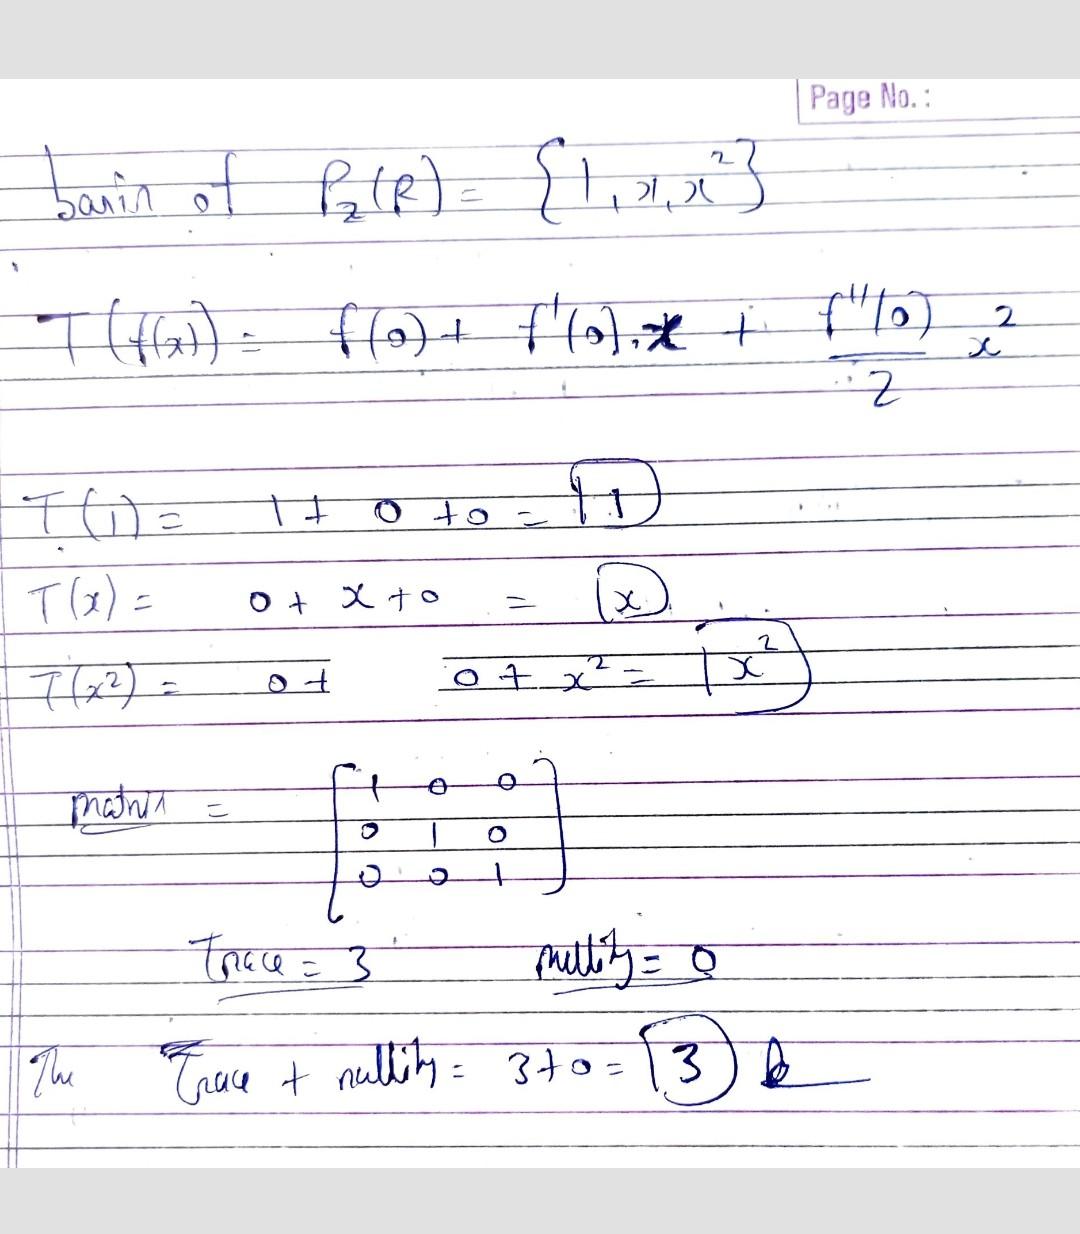 Page No. :
basis of P₂(R) = {1, x, x²}
T(f(x)) = f(0) + f'(0).x + f''(0)/2 x²
T(1) = 1 + 0 + 0 = 1
T(x) = 0 + x + 0 = x
T(x²) = 0 + 0 + x² = x²
matrix = [1 0 0
0 1 0
0 0 1]
Trace = 3 nullity = 0
The Trace + nullity = 3 + 0 = 3